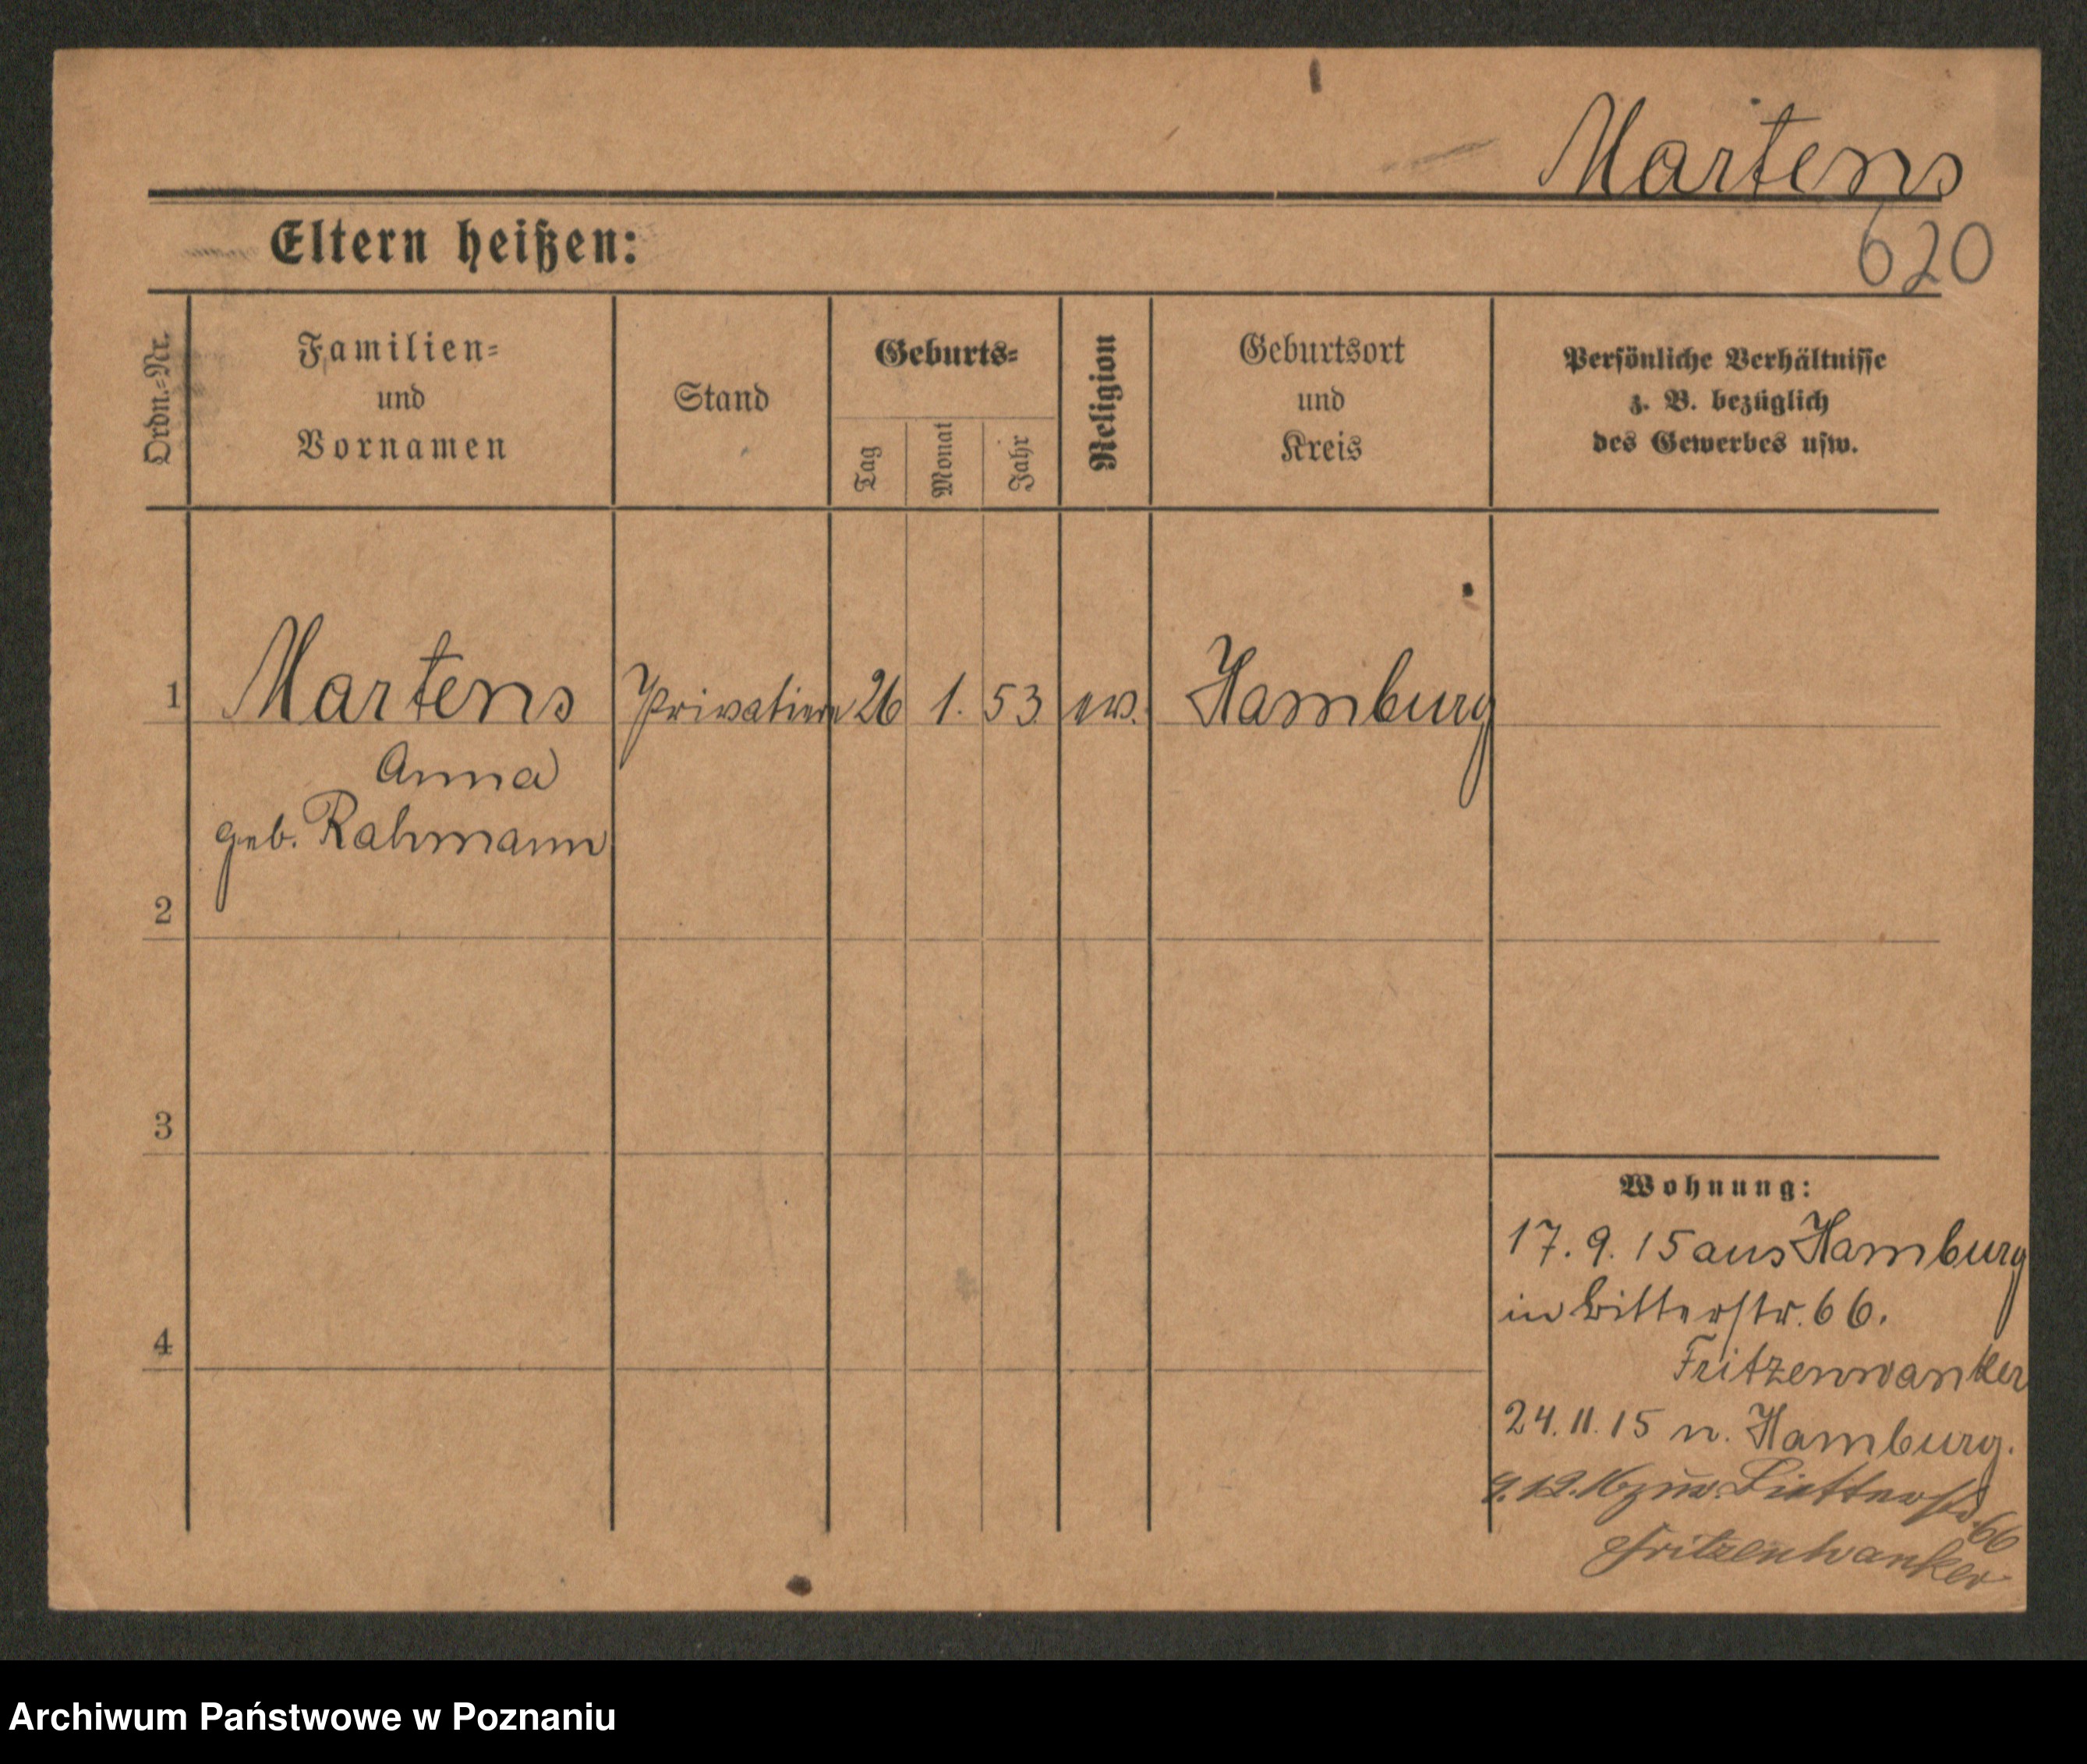 Martens
620
Eltern heißen:
Ordn.-Nr.
Familien-
und
Vornamen
Stand
Geburts-
Tag
Monat
Jahr
Religion
Geburtsort
und
Kreis
Persönliche Verhältnisse
z. B. bezüglich
des Gewerbes usw.
1 Martens Privatiere 26 1. 53 ev. Hamburg
Anna
geb. Rahmann
2
3
4
Wohnung:
17. 9. 15 aus Hamburg
in 66.
Fritzenwanker
24. 11. 15 n. Hamburg.
12. 16 zur. 66
Fritzenwanker
Archiwum Państwowe w Poznaniu